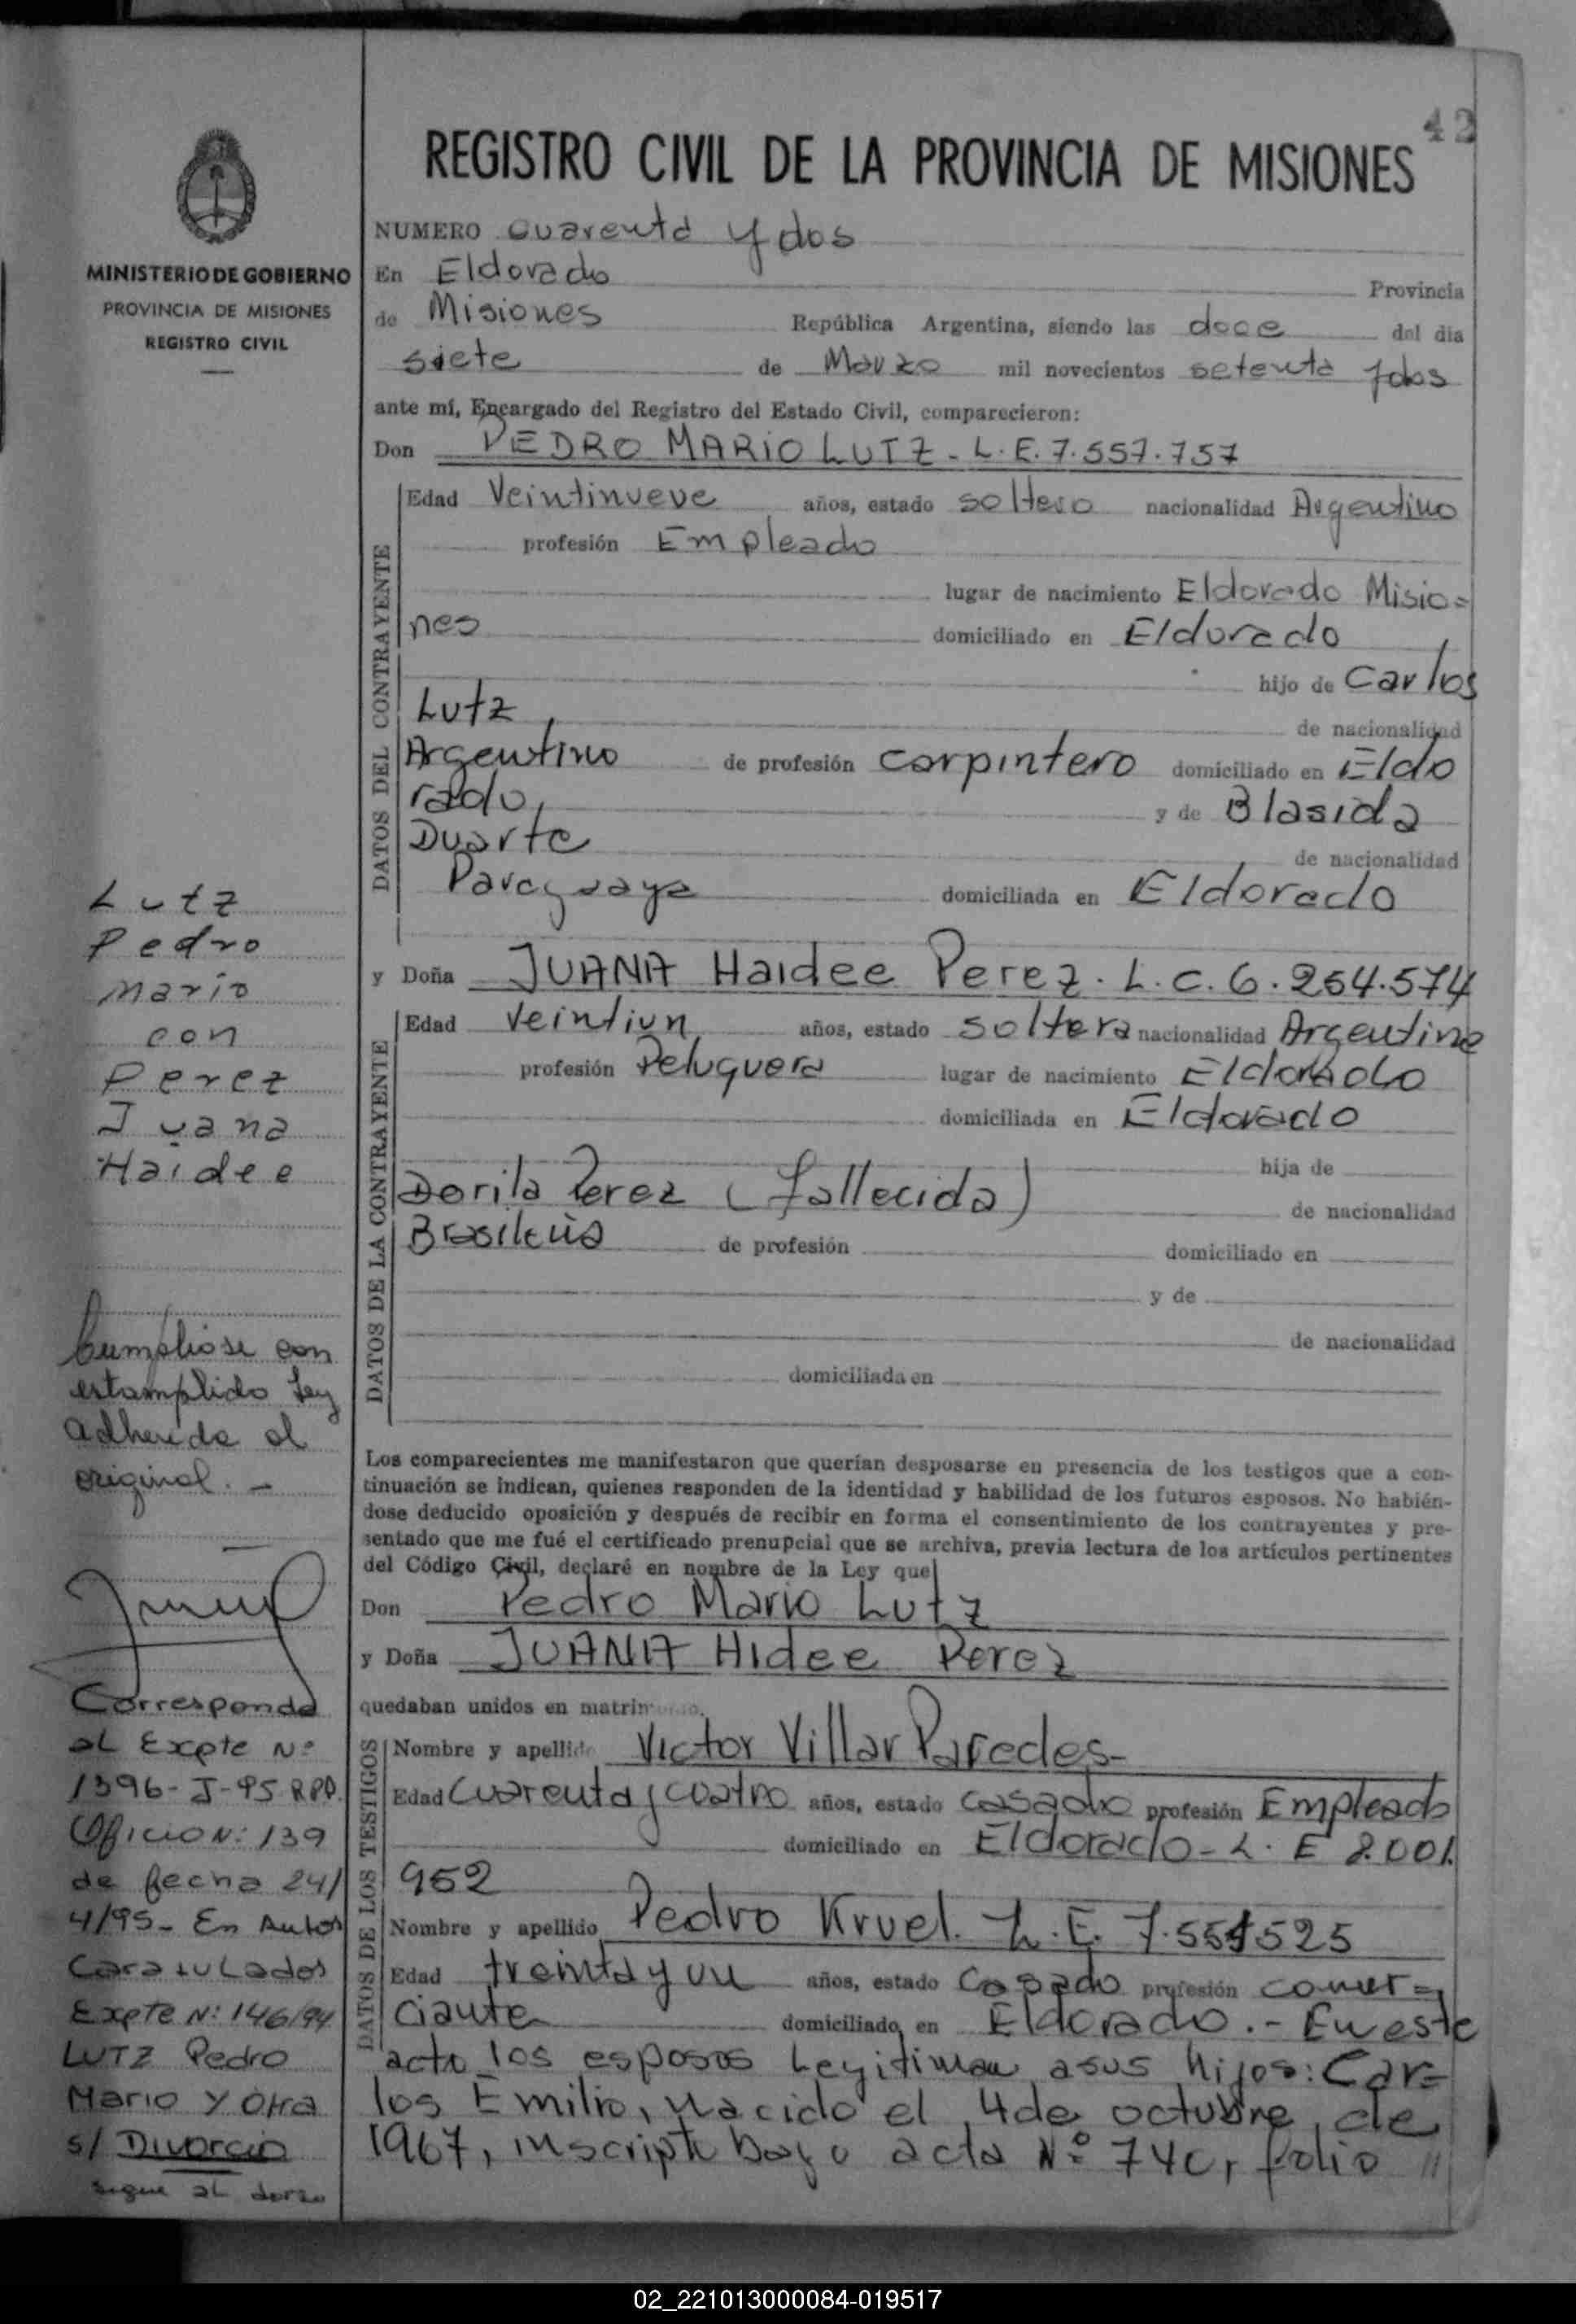 42
REGISTRO CIVIL DE LA PROVINCIA DE MISIONES
MINISTERIO DE GOBIERNO
PROVINCIA DE MISIONES
REGISTRO CIVIL
NUMERO cuarenta y dos
En Eldorado Provincia
de Misiones República Argentina, siendo las doce del día
siete de Marzo mil novecientos setenta y dos
ante mí, Encargado del Registro del Estado Civil, comparecieron:
Don PEDRO MARIO LUTZ - L.E. 7.557.757
DATOS DEL CONTRAYENTE
Edad Veintinueve años, estado soltero nacionalidad Argentino
profesión Empleado
lugar de nacimiento Eldorado Misio=
nes domiciliado en Eldorado
hijo de Carlos
Lutz, de nacionalidad
Argentino de profesión carpintero domiciliado en Eldo
rado, y de Blasida
Duarte de nacionalidad
Paraguaya domiciliada en Eldorado
y Doña JUANA Haidee Perez. L.C. 6.254.574
DATOS DE LA CONTRAYENTE
Edad veintiun años, estado soltera nacionalidad Argentina
profesión Peluquera lugar de nacimiento Eldorado
domiciliada en Eldorado
hija de
Dorila Perez (fallecida) de nacionalidad
Brasileña de profesión domiciliado en
y de
de nacionalidad
domiciliada en
Los comparecientes me manifestaron que querían desposarse en presencia de los testigos que a con-
tinuación se indican, quienes responden de la identidad y habilidad de los futuros esposos. No habién-
dose deducido oposición y después de recibir en forma el consentimiento de los contrayentes y pre-
sentado que me fué el certificado prenupcial que se archiva, previa lectura de los artículos pertinentes
del Código Civil, declaré en nombre de la Ley que
Don Pedro Mario Lutz
y Doña JUANA Hidee Perez
quedaban unidos en matrimonio.
DATOS DE LOS TESTIGOS
Nombre y apellido Victor Villar Paredes-
Edad Cuarenta y cuatro años, estado casado profesión Empleado
domiciliado en Eldorado - L. E 8.001.
952
Nombre y apellido Pedro Kruel. L.E.
Edad treinta y un años, estado Casado profesión comer=
ciante domiciliado en Eldorado.- En este
acto los esposos Legitiman a sus hijos: Car=
los Emilio, nacido el 4 de octubre de
1967, inscripto bajo acta Nº 740, folio //
Lutz
Pedro
Mario
con
Perez
Juana
Haidee
Cumpliose con
estampiido Ley
adherida al
original. -
Corresponde
al Expte Nº
1396-J-95 RPP.
Oficio Nº: 139
de fecha 24/
4/95- En Autos
Caratulados
Expte Nº: 146/94
LUTZ Pedro
Mario y Otra
s/ Divorcio
sigue al dorso
02_221013000084-019517